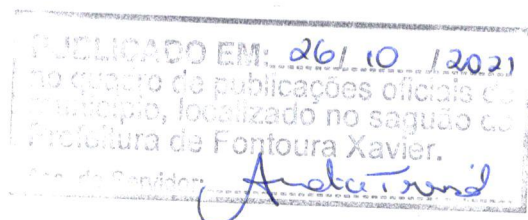 PUBLICADO EM: 26/ 10 /2021
no quadro de publicações oficiais do
Município, localizado no saguão da
Prefeitura de Fontoura Xavier.
Ass. do Servidor: